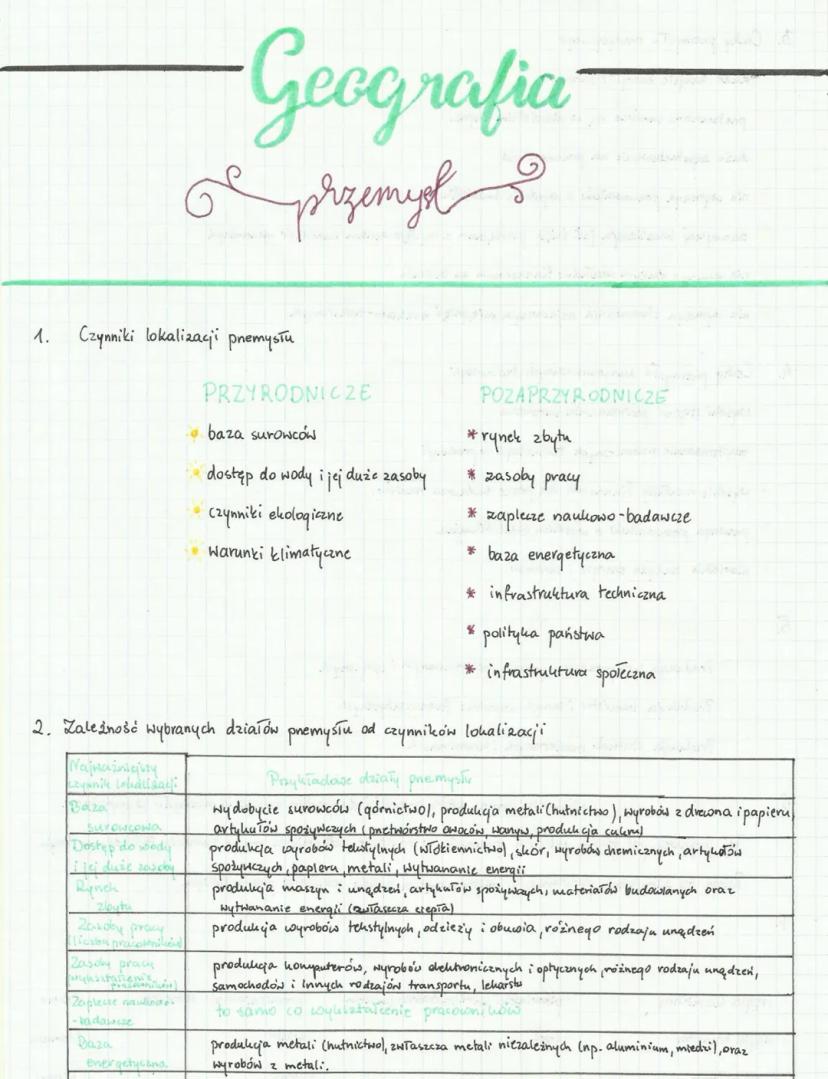 Geografia
przemysł
1. Czynniki lokalizacji przemysłu
PRZYRODNICZE
baza surowców
dostęp do wody i jej duże zasoby
czynniki ekologiczne
warunki klimatyczne
POZAPRZYRODNICZE
* rynek zbytu
* zasoby pracy
* zaplecze naukowo-badawcze
* baza energetyczna
* infrastruktura techniczna
* polityka państwa
* infrastruktura społeczna
2. Zależność wybranych działów przemysłu od czynników lokalizacji
Najważniejszy
czynnik lokalizacji
Przykładowe działy przemysłu
Baza
surowcowa
wydobycie surowców (górnictwo), produkcja metali (hutnictwo), wyrobów z drewna i papieru,
artykułów spożywczych (przetwórstwo owoców, warzyw, produkcja cukru)
Dostęp do wody
i jej duże zasoby
produkcja wyrobów tekstylnych (włókiennictwo), skór, wyrobów chemicznych, artykułów
spożywczych, papieru, metali, wytwarzanie energii
Rynek
zbytu
produkcja maszyn i urządzeń, artykułów spożywczych, materiałów budowlanych oraz
wytwarzanie energii (zwłaszcza ciepła)
Zasoby pracy
(liczba pracowników)
produkcja wyrobów tekstylnych, odzieży i obuwia, różnego rodzaju urządzeń
Zasoby pracy
wykształcenie
pracowników)
produkcja komputerów, wyrobów elektronicznych i optycznych, różnego rodzaju urządzeń,
samochodów i innych rodzajów transportu, lekarstw
Zaplecze naukowo-
-badawcze
to samo co wykształcenie pracowników
Baza
energetyczna
produkcja metali (hutnictwo), zwłaszcza metali nieżelaznych (np. aluminium, miedzi), oraz
wyrobów z metali.